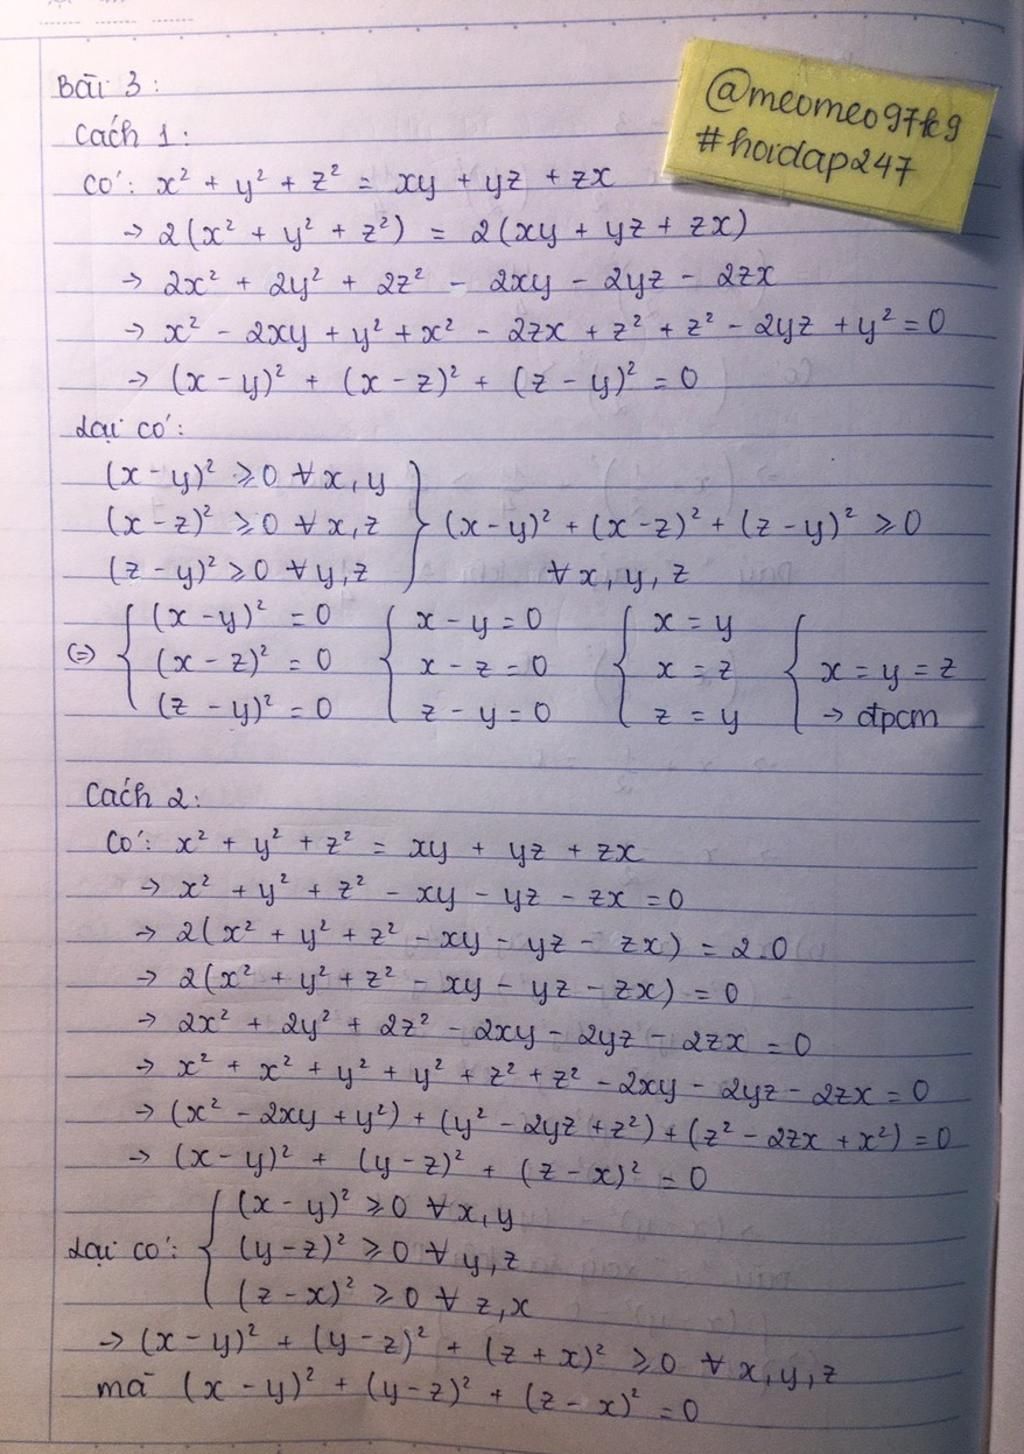 @meomeo97k9
#hoidap247
Bài 3:
Cách 1:
Có: x² + y² + z² = xy + yz + zx
→ 2(x² + y² + z²) = 2(xy + yz + zx)
→ 2x² + 2y² + 2z² - 2xy - 2yz - 2zx
→ x² - 2xy + y² + x² - 2zx + z² + z² - 2yz + y² = 0
→ (x - y)² + (x - z)² + (z - y)² = 0
Lại có:
(x - y)² ⩾ 0 ∀ x, y
(x - z)² ⩾ 0 ∀ x, z } (x - y)² + (x - z)² + (z - y)² ⩾ 0
(z - y)² ⩾ 0 ∀ y, z ∀ x, y, z
(x - y)² = 0 { x - y = 0 { x = y {
(=) { (x - z)² = 0 { x - z = 0 { x = z { x = y = z
(z - y)² = 0 { z - y = 0 { z = y { → đpcm
Cách 2:
Có: x² + y² + z² = xy + yz + zx
→ x² + y² + z² - xy - yz - zx = 0
→ 2(x² + y² + z² - xy - yz - zx) = 2.0
→ 2(x² + y² + z² - xy - yz - zx) = 0
→ 2x² + 2y² + 2z² - 2xy - 2yz - 2zx = 0
→ x² + x² + y² + y² + z² + z² - 2xy - 2yz - 2zx = 0
→ (x² - 2xy + y²) + (y² - 2yz + z²) + (z² - 2zx + x²) = 0
→ (x - y)² + (y - z)² + (z - x)² = 0
(x - y)² ⩾ 0 ∀ x, y
Lại có: { (y - z)² ⩾ 0 ∀ y, z
(z - x)² ⩾ 0 ∀ z, x
→ (x - y)² + (y - z)² + (z + x)² ⩾ 0 ∀ x, y, z
mà (x - y)² + (y - z)² + (z - x)² = 0